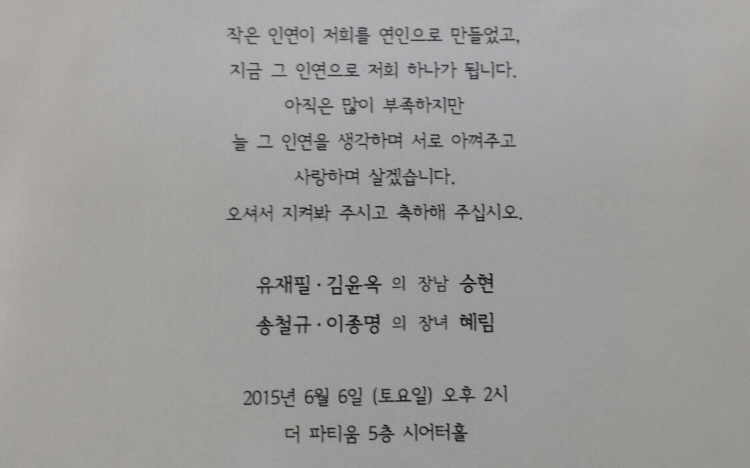 작은 인연이 저희를 연인으로 만들었고,
지금 그 인연으로 저희 하나가 됩니다.
아직은 많이 부족하지만
늘 그 인연을 생각하며 서로 아껴주고
사랑하며 살겠습니다.
오셔서 지켜봐 주시고 축하해 주십시오.
유재필·김윤옥 의 장남 승현
송철규·이종명 의 장녀 혜림
2015년 6월 6일 (토요일) 오후 2시
더 파티움 5층 시어터홀